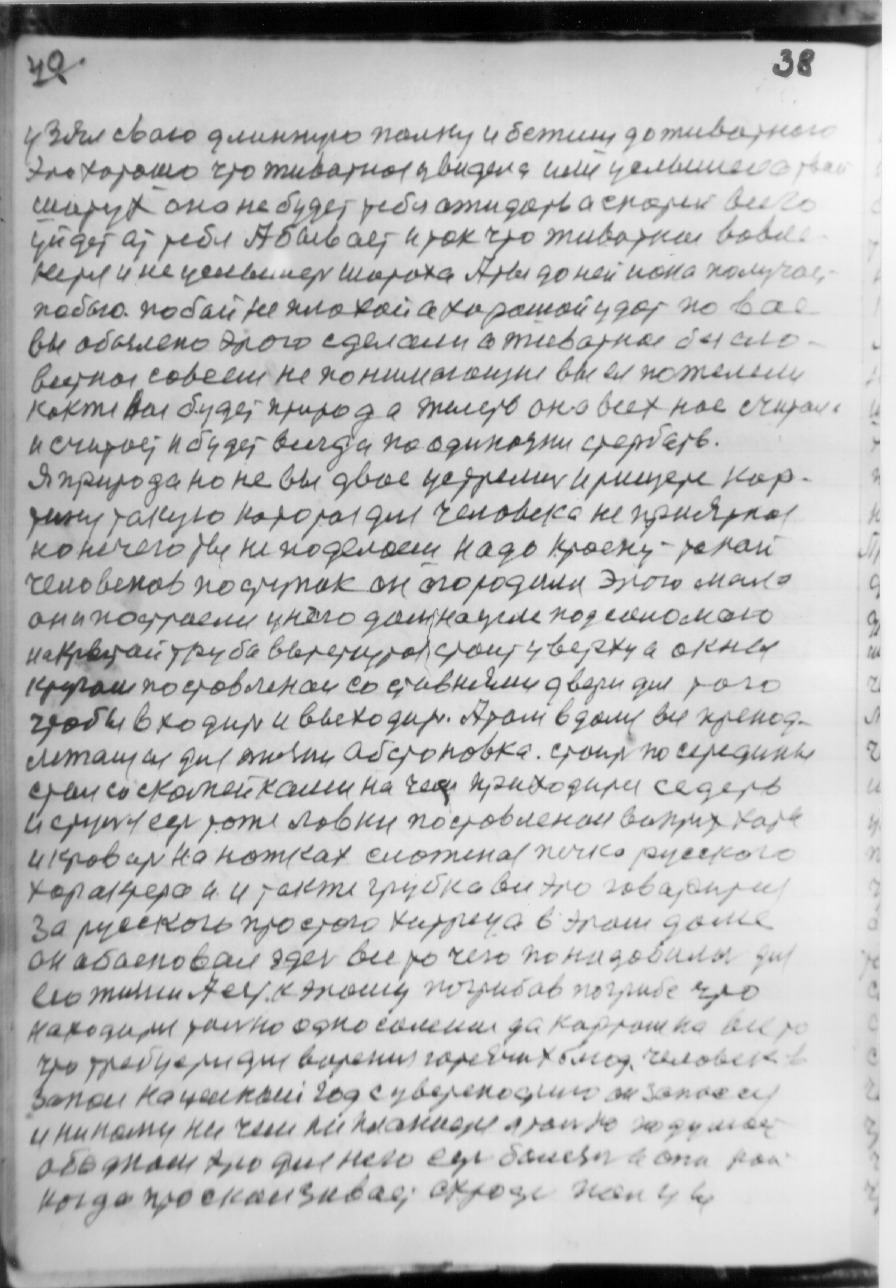 40. 38
узял сваю длинную палку и бежиш до животного
Это хорошо что животная увидела или услышела твой
шорух она не будет тебя ожидать а скорей всего
уйдет от тебя А бывает и так что животная
и не услышет шороха А ты до ней и она получает
побою. побой не плохой а хороший удар по вас
вы обязлено этого сделали а животная бысло-
вестная совсем не понимающие вы ея пожелели
как же вас будет природа жилеть она всех нас считала
и считает и будет всегда по одиночки стербать.
Я природа но не вы двое устремил и рищете кар-
тину такую которая для человека не приятная
но нечего ты не поделаеш надо краску такой
человеков поступок он огородили этого мало
они построели у него дом на угле под соломаю
накрытай труба вытенутая стоит у верху а окны
кругом поставленаи со ставнями двери для того
чтобы входить и выходить. А там в доми вы препод-
лежащая для жизни абстоновка. стоит посередины
стол со скамейками на чем приходити седеть
и стулья есть тоже лавки поставленаи вакруг хаты
и кровать на ножках сложеная печка русского
характера и также грубка вы это говарится
За русского простого хитреца в этом доме
он абасновал здеся все то чего понадобилось для
его жизни А есть к этому погрибав погрибе что
находити только одно соления да картошка все то
что требуети для варения горячих блюд. человек в
Запои на целый год с уверенностию он запасся
и никому ни чем ни планщел только подумает
обо дном это для него есть болезнь а она как
когда проскользывает